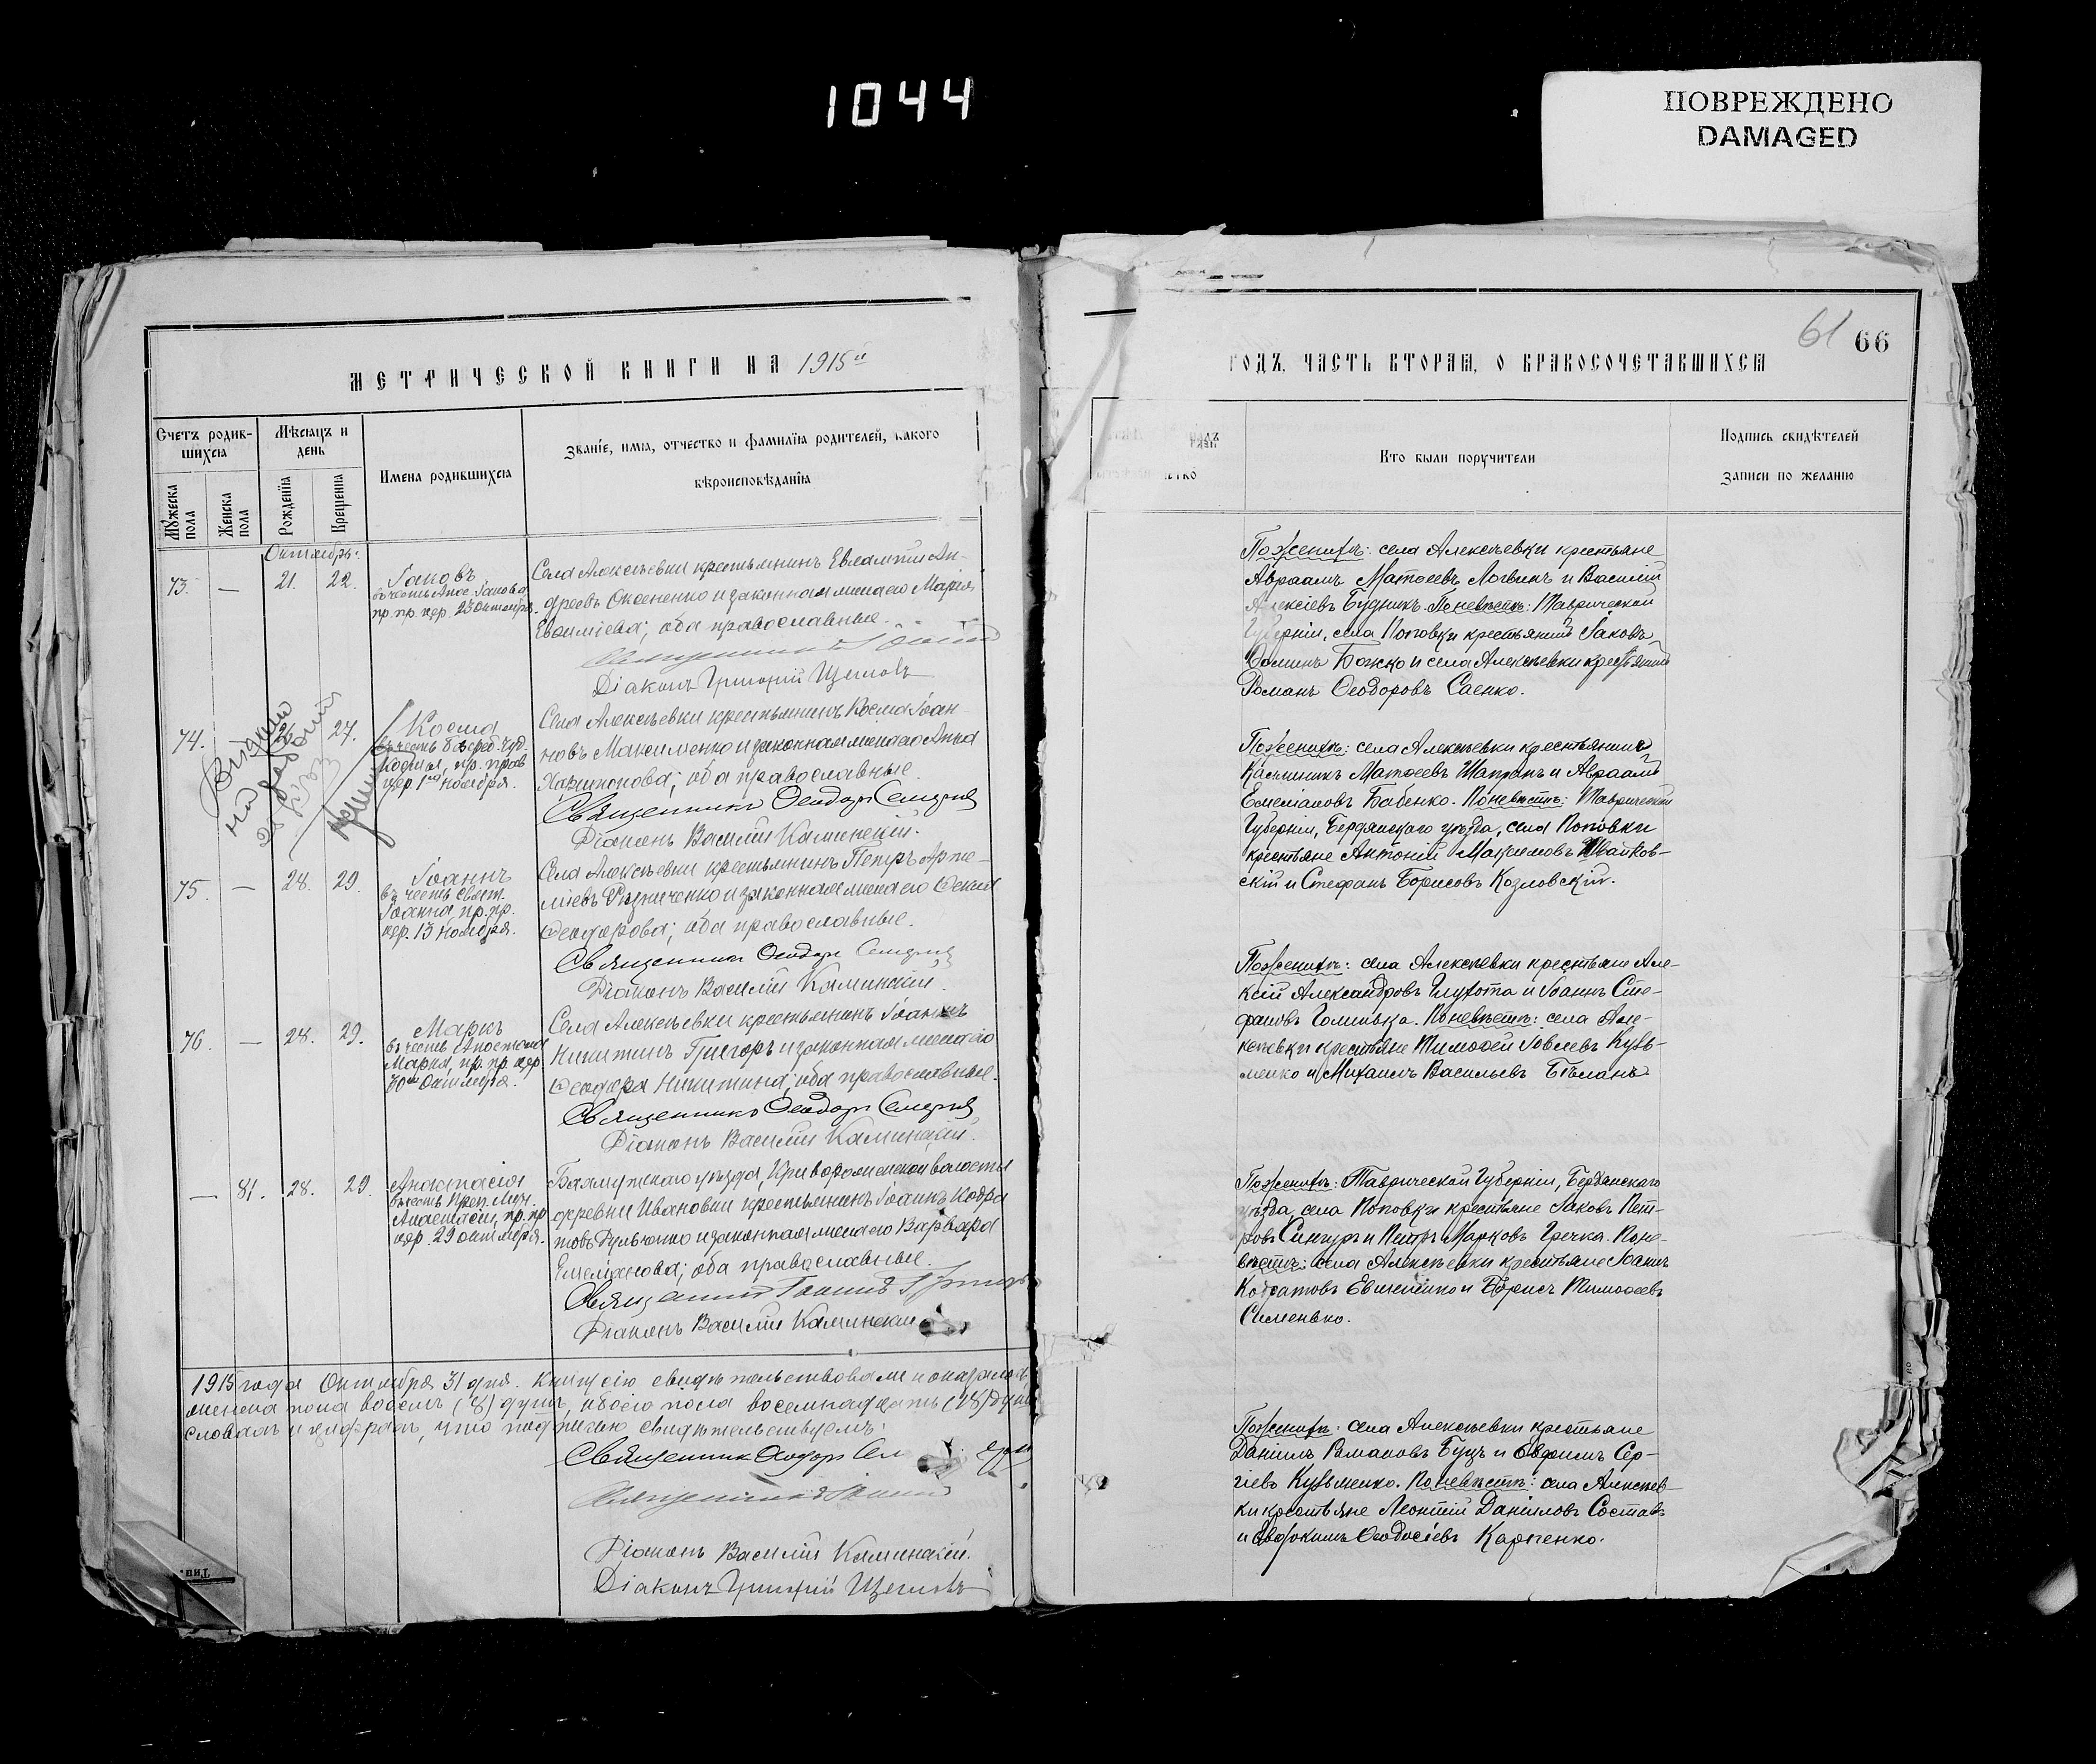 1044
ПОВРЕЖДЕНО
DAMAGED
МЕТРИЧЕСКОЙ КНИГИ НА 1915й
Счетъ родив-
шихся
Мѣсяцъ и
день
Имена родившихся
Званіе, имя, отчество и фамилія родителей, какого
вѣроисповѣданія
Мужеска
пола
Женска
пола
Рожденія
Крещенія
Октябрь.
73. — 21. 22.
Іаковъ
въ честь Апос. Іакова,
пр. пр. цер. 23 Октября.
Села Алексѣевки крестьянинъ Евлампій Ан-
дреевъ Оксененко и законная жена его Марія
Евѳиміева; оба православные.
Діаконъ Григорій Щегловъ
74. 26. 27.
Косма
въ честь безсреб. чуд.
Космы, пр. прав.
цер. 1го Ноября.
Села Алексѣевки крестьянинъ Косма Іоан-
новъ Максименко и законная жена его Анна
Харитонова; оба православные.
Священникъ Ѳеодоръ
Діаконъ Василій Каминскій.
75. — 28. 29.
Іоаннъ
въ честь Свят.
Іоанна, пр. пр.
цер. 13 Ноября.
Села Алексѣевки крестьянинъ Петръ Арте-
міевъ и законная жена его Ѳекла
Ѳеодорова; оба православные.
Священникъ Ѳеодоръ
Діаконъ Василій Каминскій.
76. — 28. 29.
Маркъ
въ честь Апостола
Марка, пр. пр. цер.
30го Октября.
Села Алексѣевки крестьянинъ Іоаннъ
Никитинъ и законная жена его
Никитина; оба православные.
Священникъ Ѳеодоръ
Діаконъ Василій Каминскій.
— 81. 28. 29.
Анастасія
въ честь Преп. Муч.
Анастасіи, пр. пр.
цер. 29 Октября.
Бахмутскаго уѣзда, волости
деревни Ивановки крестьянинъ Іоаннъ Кодра-
товъ и законная жена его Варвара
Емеліанова; оба православные.
Священникъ Іоаннъ
Діаконъ Василій Каминскій
1915 года Октября 31 дня. Книгу сію свидѣтельствовали и оказалось
женска пола восемь (8) душъ, обоего пола восемнадцать (18) душъ
словахъ и цифрахъ, что подписью свидѣтельствуемъ:
Священникъ Ѳеодоръ
Діаконъ Василій Каминскій.
Діаконъ Григорій Щегловъ
61 66
ГОДЪ, ЧАСТЬ ВТОРАЯ, О БРАКОСОЧЕТАВШИХСЯ
Кто были поручители
Подпись свидѣтелей
записи по желанію
По женихѣ: села Алексѣевки крестьяне
Авраамъ Матѳеевъ Логвинъ и Василій
Алексіевъ Будникъ. По невѣстѣ: Таврической
Губерніи, села Поповки крестьянинъ Іаковъ
Ѳоминъ Божко и села Алексѣевки крестьянинъ
Романъ Ѳеодоровъ Саенко.
По женихѣ: села Алексѣевки крестьянинъ
Матѳеевъ и Авраамъ
Емеліановъ Бабенко. По невѣстѣ: Таврической
Губерніи, Бердянскаго уѣзда, села Поповки
крестьяне Антоній Максимовъ Швайков-
скій и Стефанъ Борисовъ Козловскій.
По женихѣ: села Алексѣевки крестьяне Але-
ксій Александровъ Глухота и Іоаннъ Сте-
фановъ По невѣстѣ: села Але-
ксѣевки крестьяне Тимоѳей Іовлевъ Кузь-
менко и Михаилъ Васильевъ Бѣланъ.
По женихѣ: Таврической Губерніи, Бердянскаго
уѣзда, села Поповки крестьяне Іаковъ Пет-
ровъ и Петръ Марковъ Гречка. По не-
вѣстѣ: села Алексѣевки крестьяне Іоаннъ
Кодратовъ и Борисъ Тимоѳеевъ
Сименько.
По женихѣ: села Алексѣевки крестьяне
Даніилъ Романовъ Буцъ и Евфимъ Сер-
гіевъ Кузьменко. По невѣстѣ: села Алексѣев-
ки крестьяне Леонтій Даніиловъ
и Евдокимъ Ѳеодосіевъ Карпенко.